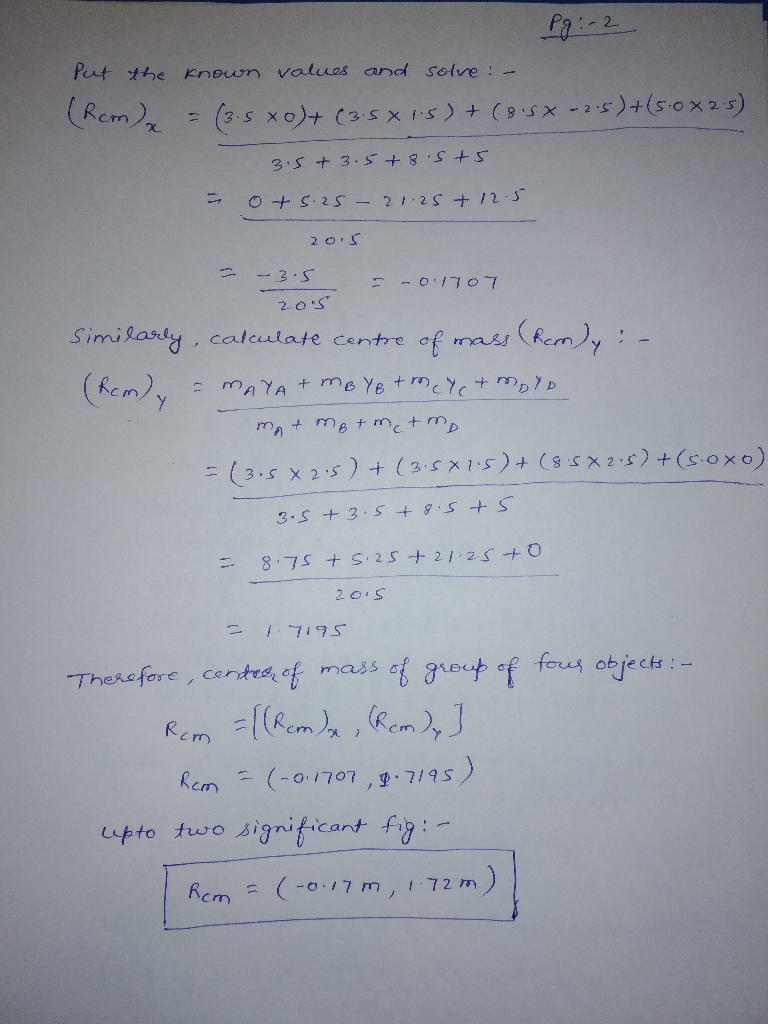 Pg:-2
Put the known values and solve:-
(Rcm)x = (3.5 x0)+ (3.5 x 1.5) + (8.5x -2.5)+(5.0 x 2.5)
3.5 + 3.5 + 8.5 +5
= 0 + 5.25 - 21.25 + 12.5
20.5
= -3.5 = -0.1707
20.5
Similarly, calculate centre of mass (Rcm)y :-
(Rcm)y = mAYA + mBYB + mCYC + mDYD
mA + mB + mC + mD
= (3.5 x 2.5) + (3.5 x 1.5) + (8.5 x 2.5) + (5.0 x 0)
3.5 + 3.5 + 8.5 + 5
= 8.75 + 5.25 + 21.25 + 0
20.5
= 1.7195
Therefore, center of mass of group of four objects:-
Rcm = [(Rcm)x, (Rcm)y]
Rcm = (-0.1707, 1.7195)
upto two significant fig:-
Rcm = (-0.17m, 1.72m)